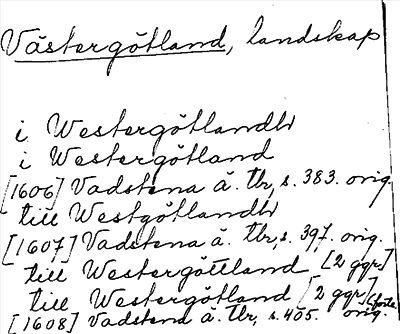 Västergötland, landskap
i Westergötlandh
i Westergötland
[1606] Vadstena ä. Tb, s. 383. orig.
till Westgötlandh
[1607] Vadstena ä. Tb, s. 397. orig.
till Westergötteland [2 ggr.]
till Westergötland [2 ggr.]
[1608] Vadstena ä. Tb, s. 405. orig.